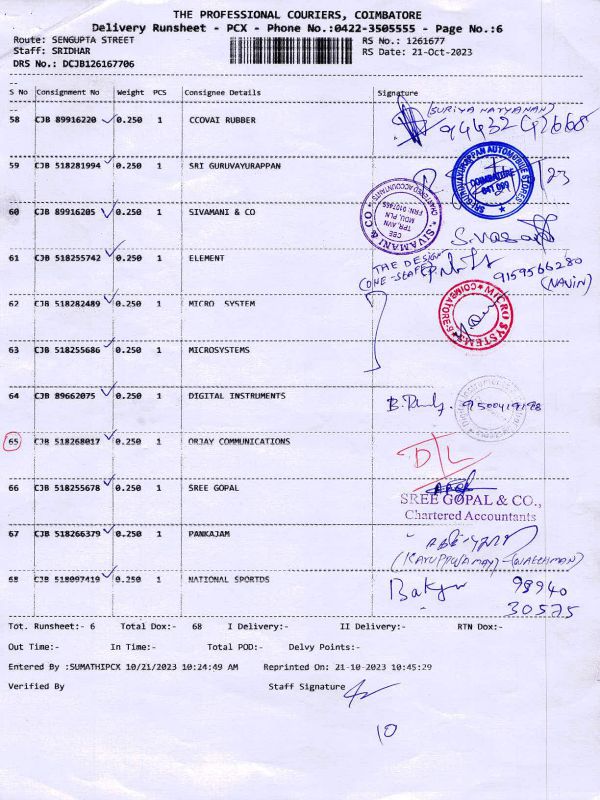 THE PROFESSIONAL COURIERS, COIMBATORE
Delivery Runsheet - PCX - Phone No.:0422-3505555 - Page No.:6
Route: SENGUPTA STREET RS No.: 1261677
Staff: SRIDHAR RS Date: 21-Oct-2023
DRS No.: DCJB126167706
S No Consignment No Weight PCS Consignee Details Signature
58 CJB 89916220 0.250 1 CCOVAI RUBBER (SURIYA NARYANAN)
59 CJB 518281994 0.250 1 SRI GURUVAYURAPPAN
SRI GURUVAYURAPPAN AUTOMOBILE STORES
COIMBATORE
CHARTERED ACCOUNTANTS
SIVAMANI & CO
60 CJB 89916205 0.250 1 SIVAMANI & CO S.Vasanth
61 CJB 518255742 0.250 1 ELEMENT THE DESIGN
9159566280
(NAVIN)
62 CJB 518282489 0.250 1 MICRO SYSTEM
MICRO SYSTEM COIMBATORE
63 CJB 518255686 0.250 1 MICROSYSTEMS
64 CJB 89662075 0.250 1 DIGITAL INSTRUMENTS
65 CJB 518268017 0.250 1 ORJAY COMMUNICATIONS D/L
66 CJB 518255678 0.250 1 SREE GOPAL
SREE GOPAL & CO.,
Chartered Accountants
67 CJB 518266379 0.250 1 PANKAJAM
68 CJB 518097419 0.250 1 NATIONAL SPORTDS 98940
30575
Tot. Runsheet:- 6 Total Dox:- 68 I Delivery:- II Delivery:- RTN Dox:-
Out Time:- In Time:- Total POD:- Delvy Points:-
Entered By :SUMATHIPCX 10/21/2023 10:24:49 AM Reprinted On: 21-10-2023 10:45:29
Verified By Staff Signature
10